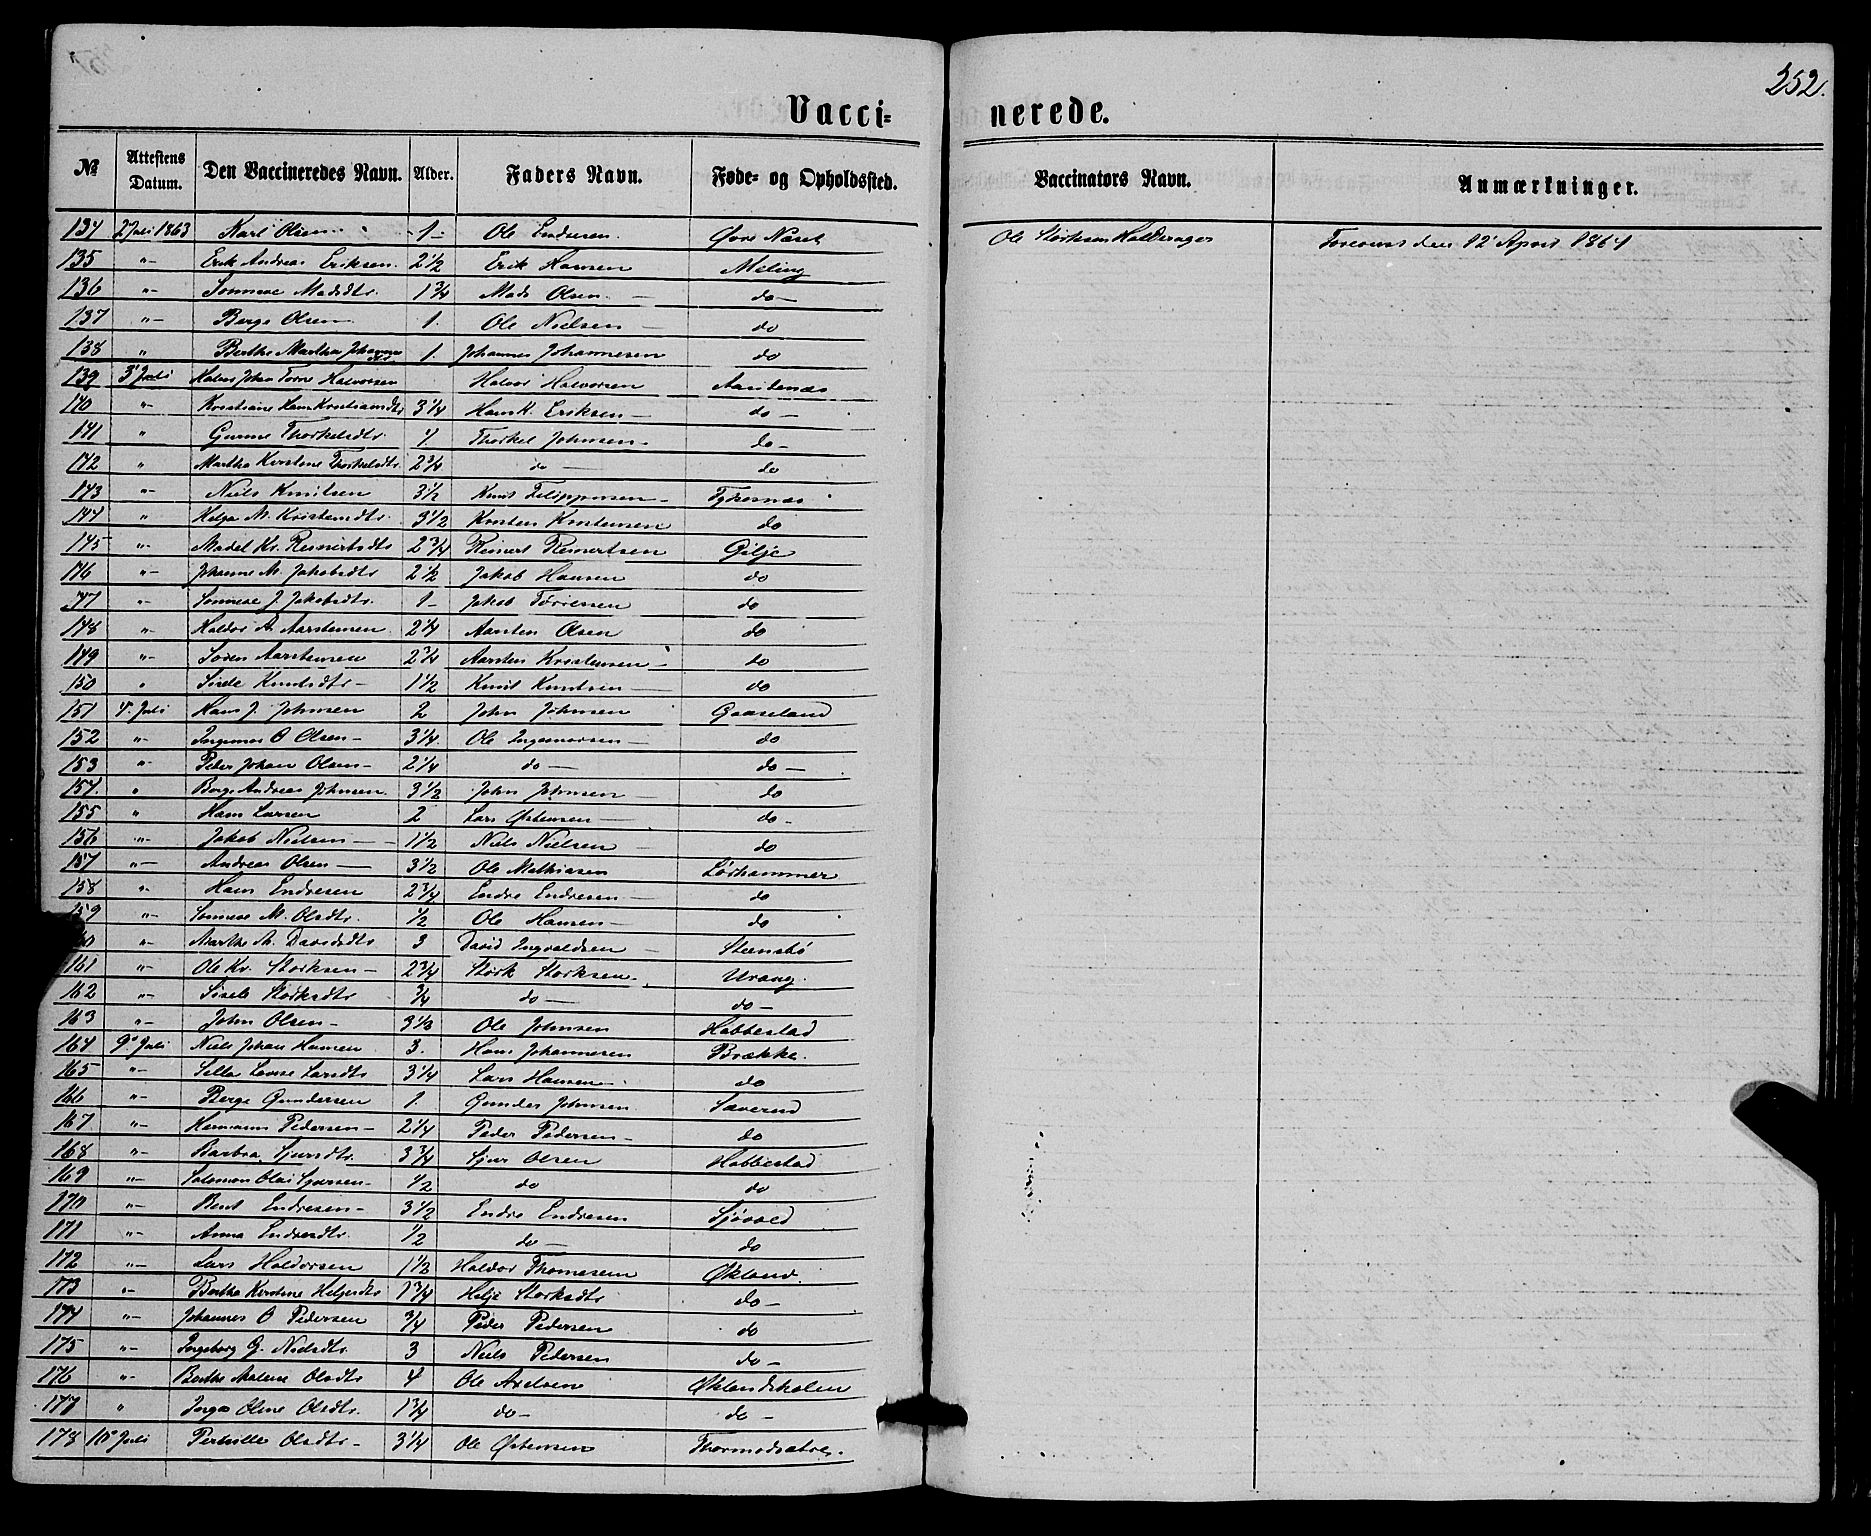 252.
Vacci= nerede.
№ Attestens Datum. Den Vaccineredes Navn. Alder. Faders Navn. Føde- og Opholdssted. Vaccinators Navn. Anmærkninger.
134 2 Juli 1863 Karl Olsen 1 Ole Endresen Øvre Naset Ole Størksen den 12 April 1864
135 "- Erik Andreas Eriksen 2 1/2 Erik Hansen Meling
136 "- Sønneve Madsdtr. 1 3/4 Mads Olsen - do -
137 "- Berge Olsen 1. Ole Nielsen - do
138 " Berthe Martha Johannesdtr 1. Johannes Johannesen do
139 3 Juli Johan Halvorsen Halvor Halvorsen
140 "- Kristiane Hans Kristiansdtr 3 1/4 Hans K. Eriksen - do -
141 " Gunne Thorkelsdtr. Thorkel Johnsen - do -
142 " Martha Kirstine Thorkelsdtr. 2 3/4 do - do
143 "- Niels Knutsen 3 1/2 Knut Filippusen -
144 " Helga M. Kristensdtr. 3 1/2 Kristen Kristensen do
145 "- Madel Kr. Reinertsdtr 2 3/4 Reinert Reinertsen Gilje
146 "- Johanne M. Jakobsdtr 2 1/2 Jakob Hansen do
147 "- Sønneve J Jakobsdtr. 1 - Jakob do
148 "- Haldor A. Aarstensen 2 1/4 Aarsten Olsen do
149 "- Søren Aarstensen 2 3/4 Aarsten Kristensen - do
150 " Sisele Knutsdtr - 1 1/2 Knut Knutsen - do
151 4. Juli Hans J. Johnsen 2 John Johnsen Gaaseland
152 "- Ingemor O Olsen - 3 1/4. Ole Ingemorsen - do
153 "- Peder Johan Olsen - 2 1/4 do - do -
154. " Berge Andreas Johnsen. 3 1/2 John Johnsen - do
155 " Hans Larsen 2 Lars Østensen - do -
156 "- Jakob Nielsen - 1 1/2 Niels Nielsen - do
157 "- Andreas Olsen - 3 1/2 Ole Mathiasen Lørhammer
158 "- Hans Endresen 2 3/4 Endre Endresen - do
159 "- Sønneve M. Olsdtr. 1/2 Ole Hansen - do
"- Marthe M. Davidsdtr 3 David Ingvaldsen - Steensbø
161 "- Ole Kr. Størksen - 2 3/4 Størk Størksen. Urang.
162 "- Sisele Størksdtr 3/4 do - do -
163 "- John Olsen - 3 1/3 Ole Johnsen Habbestad
164 9 Juli Niels Johan Hansen 3. Hans Johannesen Brække.
165 "- Lovise Larsdtr 3 1/4 Lars Hansen - do
166 "- Berge Gundersen 1. Gunder Johnsen
167 "- Hermann Pedersen - 2 1/4 Peder Pedersen - do
168 "- Barbra Sjursdtr. 3 3/4 Sjur Olsen Habbestad
169 "- Salomon Olai Sjursen - 1/2 do do
170 "- Bent Endresen - 3 1/2 Endre Endresen
171 "- Anna Endresdtr. 1/2 do - do
172 "- Lars Haldorsen 1 1/2 Haldor Thomesen Økland.
173 "- Bertha Kirstine Heljesdtr 1 3/4 Helje Størksdtr do -
174 "- Johannes O Pedersen 3/4 Peder Pedersen do
175 "- Ingeborg G. Nielsdtr 3 Niels Pedersen do -
176 "- Berthe Malene Olsdtr 4 Ole Axelsen Øklandshølen
177 " Inga Oline Olsdtr. 1 3/4 do - do -
178 10 Juli Pernille Olsdtr - 3 1/4 Ole Østensen Thormodsætre.